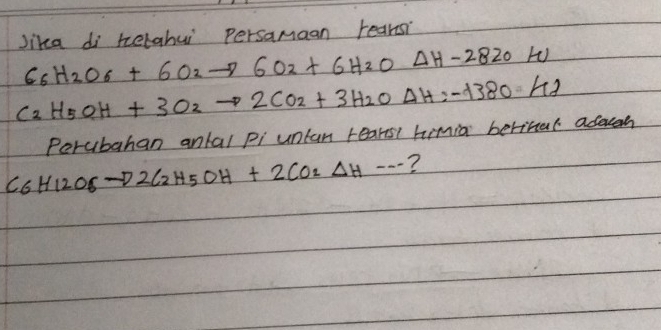 Jika di ketahui Persamaan reaksi
C6H2O6 + 6O2 → 6O2 + 6H2O ΔH -2820 kJ
C2H5OH + 3O2 → 2CO2 + 3H2O ΔH = -1380 kJ
Perubahan antal Pi untuk reaksi kimia berikut adalah
C6H12O6 → 2C2H5OH + 2CO2 ΔH ---?